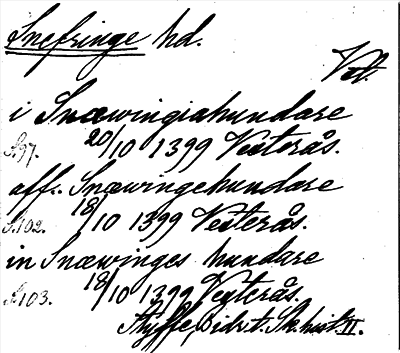 Snefringe hd.
Vstm.
i Snæwingiahundare
S. 97. 20/10 1399 Västerås.
aff. Snæwingehundare
S. 102. 18/10 1399 Västerås.
in Snæwinges hundare
S. 103. 18/10 1399 Västerås.
Styffe Bidr. t. Sk. hist. II.